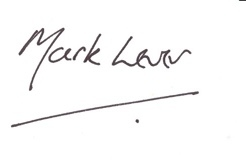 Mark Lever